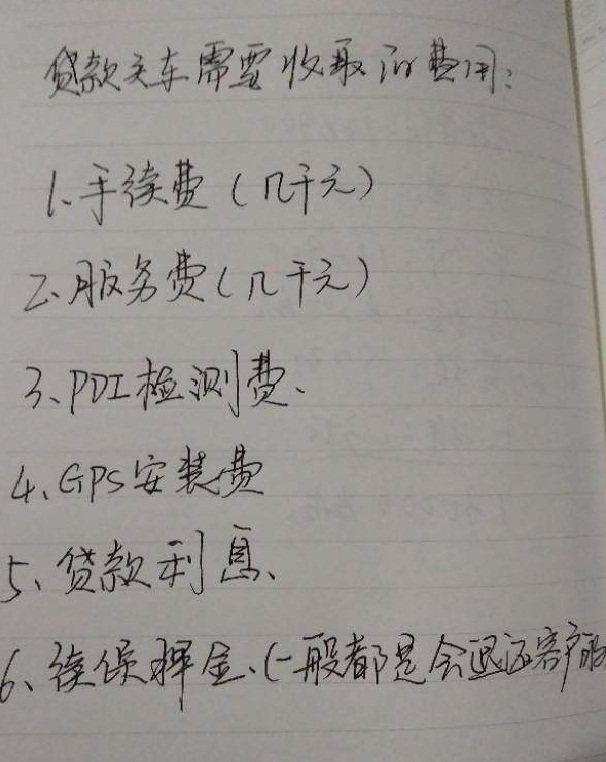 贷款买车需要收取的费用:
1.手续费(几千元)
2.服务费(几千元)
3、PDI检测费、
4、GPS安装费
5、贷款利息、
6、续保押金.(一般都是会退还客户的